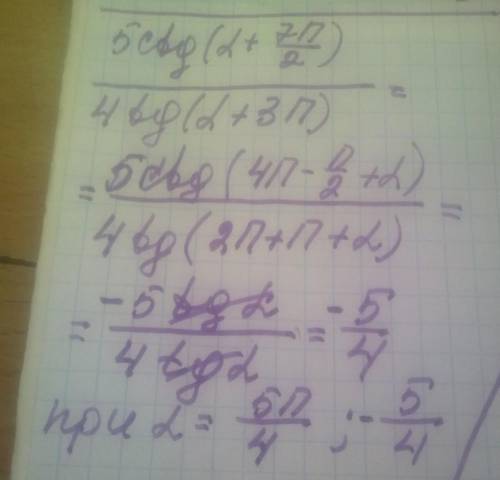 5ctg(α + 7π/2) / 4tg(α + 3π) =
= 5ctg(4π - π/2 + α) / 4tg(2π + π + α) =
= -5tgα / 4tgα = -5/4
при α = 5π/4 ; -5/4